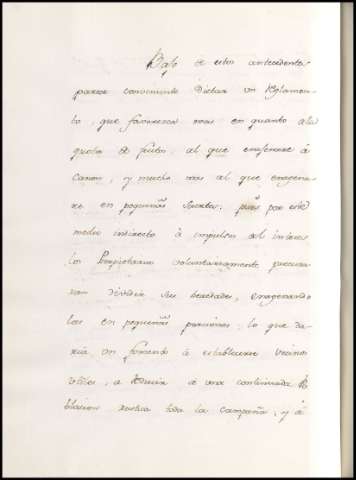 Bajo de estos antecedentes
parece conveniente Dictar un Reglamen-
to, que favoresca mas en quanto a la
quota de frutos, al que enfiteure á
Canon, y mucho mas al que enagena-
re en pequeñas Suertes; pues por este
medio indirecto á impulsos del interes
los Propietarios voluntariamente procura-
ran dividir sus heredades, enagenando
las en pequeñas porciones; lo que da-
ria un fomento á establecerse vecinos
utiles, a reducir a una continuada Po-
blacion rustica toda la Campaña, y á